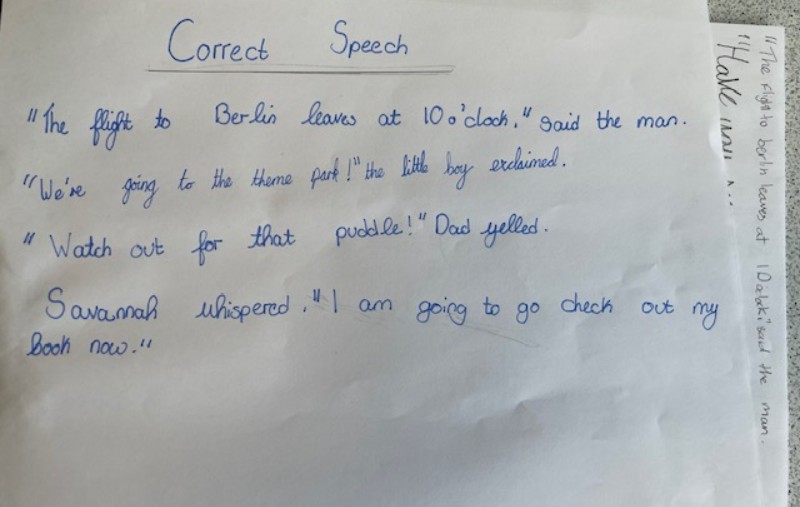 Correct Speech
"The flight to Berlin leaves at 10 o'clock," said the man.
"We're going to the theme park!" the little boy exclaimed.
"Watch out for that puddle!" Dad yelled.
Savannah whispered, "I am going to go check out my
book now."
"The flight to berlin leaves at 10 said the man.
"Have